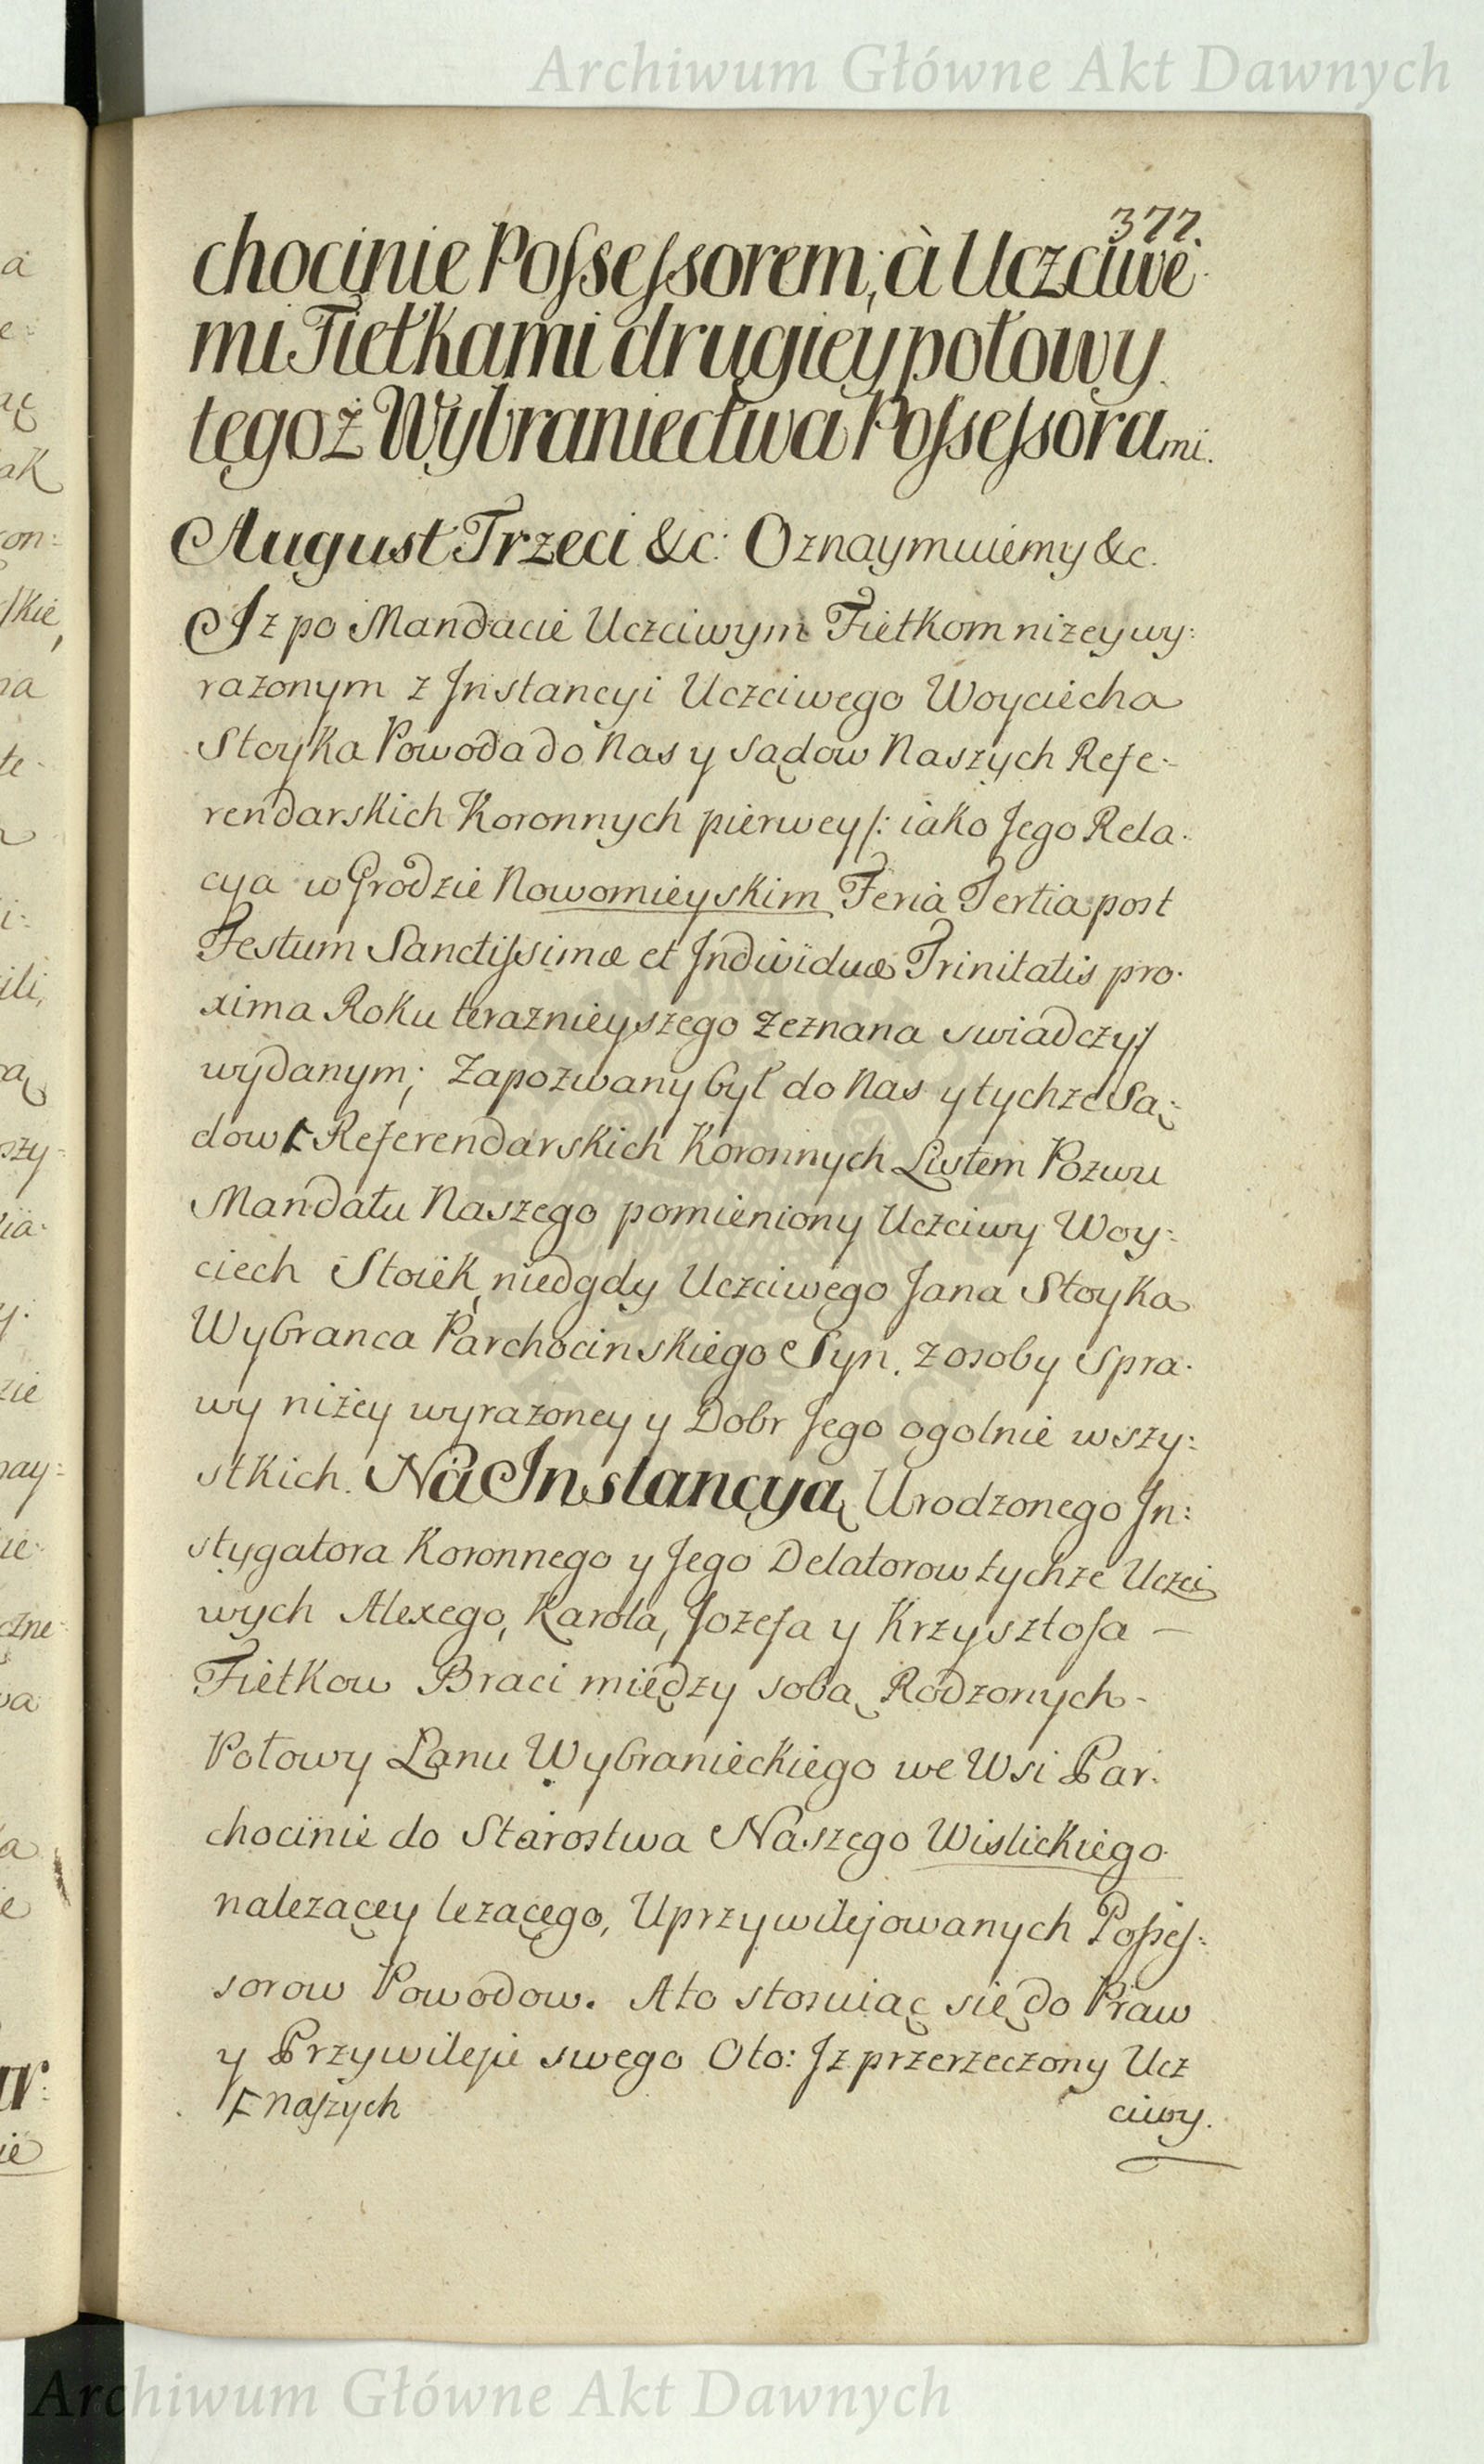 Archiwum Główne Akt Dawnych
377.
chocinie Possessorem, à Uczciwe-
mi Fietkami drugiey połowy
tegoż Wybraniectwa Possessorami.
August Trzeci &c: Oznaymuiemy &c.
Jz po Mandacie Uczciwym Fietkom nizey wy:
razonym z Jnstancyi Uczciwego Woyciecha
Stoyka Powoda do Nas y Sądow Naszych Refe-
rendarskich Koronnych pierwey /: iako Jego Rela-
cya w Grodzie Nowomieyskim Feria Tertia post
Festum Sanctissimæ et Jndividuæ Trinitatis pro-
xima Roku teraznieyszego zeznana swiadczy :/
wydanym; Zapozwany był do Nas y tychze Są:
dow Ⱶ Referendarskich Koronnych Listem Pozwu
Mandatu Naszego pomieniony Uczciwy Woy:
ciech Stoiek, niedgdy Uczciwego Jana Stoyka
Wybranca Parchocinskiego Syn, z osoby Spra-
wy niżey wyrazoney y Dobr Jego ogolnie wszy:
stkich. Na Jnstancyą Urodzonego Jn:
stygatora Koronnego y Jego Delatorow tychze Uczci
wych Alexego, Karola, Jozefa y Krzysztofa —
Fietkow Braci między sobą Rodzonych-
Połowy Łanu Wybranieckiego we Wsi Par-
chocinie do Starostwa Naszego Wislickiego
nalezącey lezącego, Uprzywilejowanych Posses:
sorow Powodow. A to stosuiąc się do Praw
y Przywileju swego Oto: Jz przerzeczony Ucz
Ⱶ naszych
ciwy.
Archiwum Główne Akt Dawnych